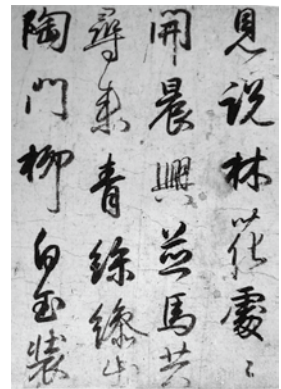 見説林花處〻
開晨興並馬共
尋来青絲縿出
陶門柳白玉装